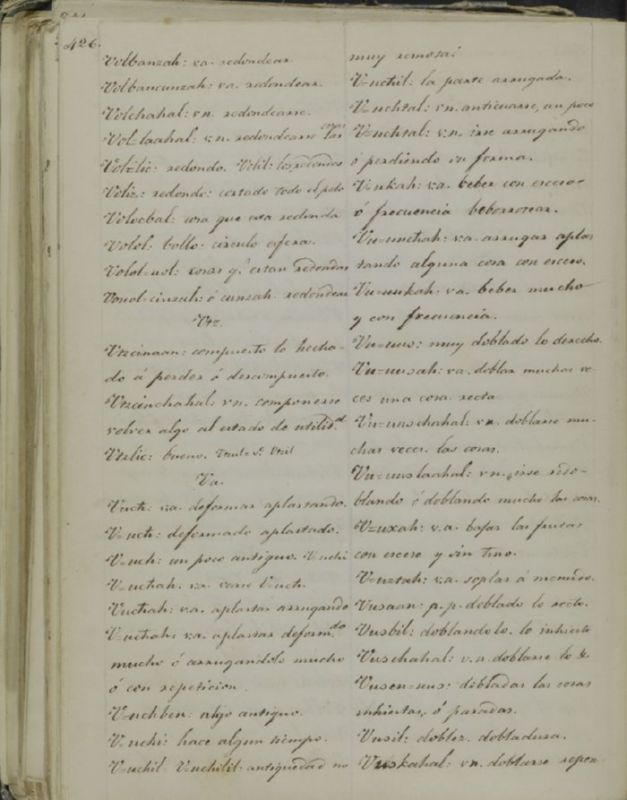 426.
Volbanzah: va. redondear.
Volbancunzah: va. redondear.
Volchahal: vn. redondearse.
Vol-laahal: v.n. redondearse
Volzlic: redondo. Volil: los redondos
Voliz: redondo: cortado todo el pelo
Volocbal: cosa que esta redonda
Volol: bollo: circulo esfera.
Volol-uol: cosas q.e estan redondas
Vonol-cinzah: ó cunzah redondear
Vtz.
Vtzcinaan: compuesto lo hecha-
do á perder ó descompuesto.
Vtzcinchahal: vn. componerse
volver algo al estado de utilid.d
Vtzlic: bueno.
Vu.
Vuch: va. deformar aplastando.
V=uch: deformado aplastado.
V=uch: un poco antiguo. V=uchi
V=uchah. va. vease V=uch.
Vuchah: va. aplastar arrugando
V=uchah: va. aplastar deform.do
mucho ó arrugandolo mucho
ó con repeticion.
V=uchben: algo antiguo.
V=uchi: hace algun tiempo.
V=uchil. V=uchilil. antiguedad no
muy remosa:
V=uchil: la parte arrugada.
V=uchtal: vn. anticuarse, un poco
V=uchtal: v.n. irse arrugando
ó perdiendo su forma.
V=ukah: va. beber con exceso
ó frecuencia beborrotear.
Vu=uuchah: va. arrugar aplas
tando alguna cosa con exceso.
Vu=uukah: va. beber mucho
y con frecuencia.
Vu=uus: muy doblado lo derecho.
Vu=uusah: va. doblar muchas ve-
ces una cosa recta.
Vu=uuschahal: vn. doblarse mu-
chas veces las cosas.
Vu=uuslaahal: vn. irse redo-
blando ó doblando mucho las cosas.
V=uxah: va. bajar las frutas
con exceso y sin tino.
V=uztah: va. soplar á menudo.
Vusaan: p.p. doblado lo recto.
Vusbil: doblandolo. lo inhiesto
Vuschahal: v.n. doblarse lo &.
Vusen-uus: dobladas las cosas
inhiestas, ó paradas.
Vusil: doblez. dobladura.
Vuskahal: vn. doblarse repen